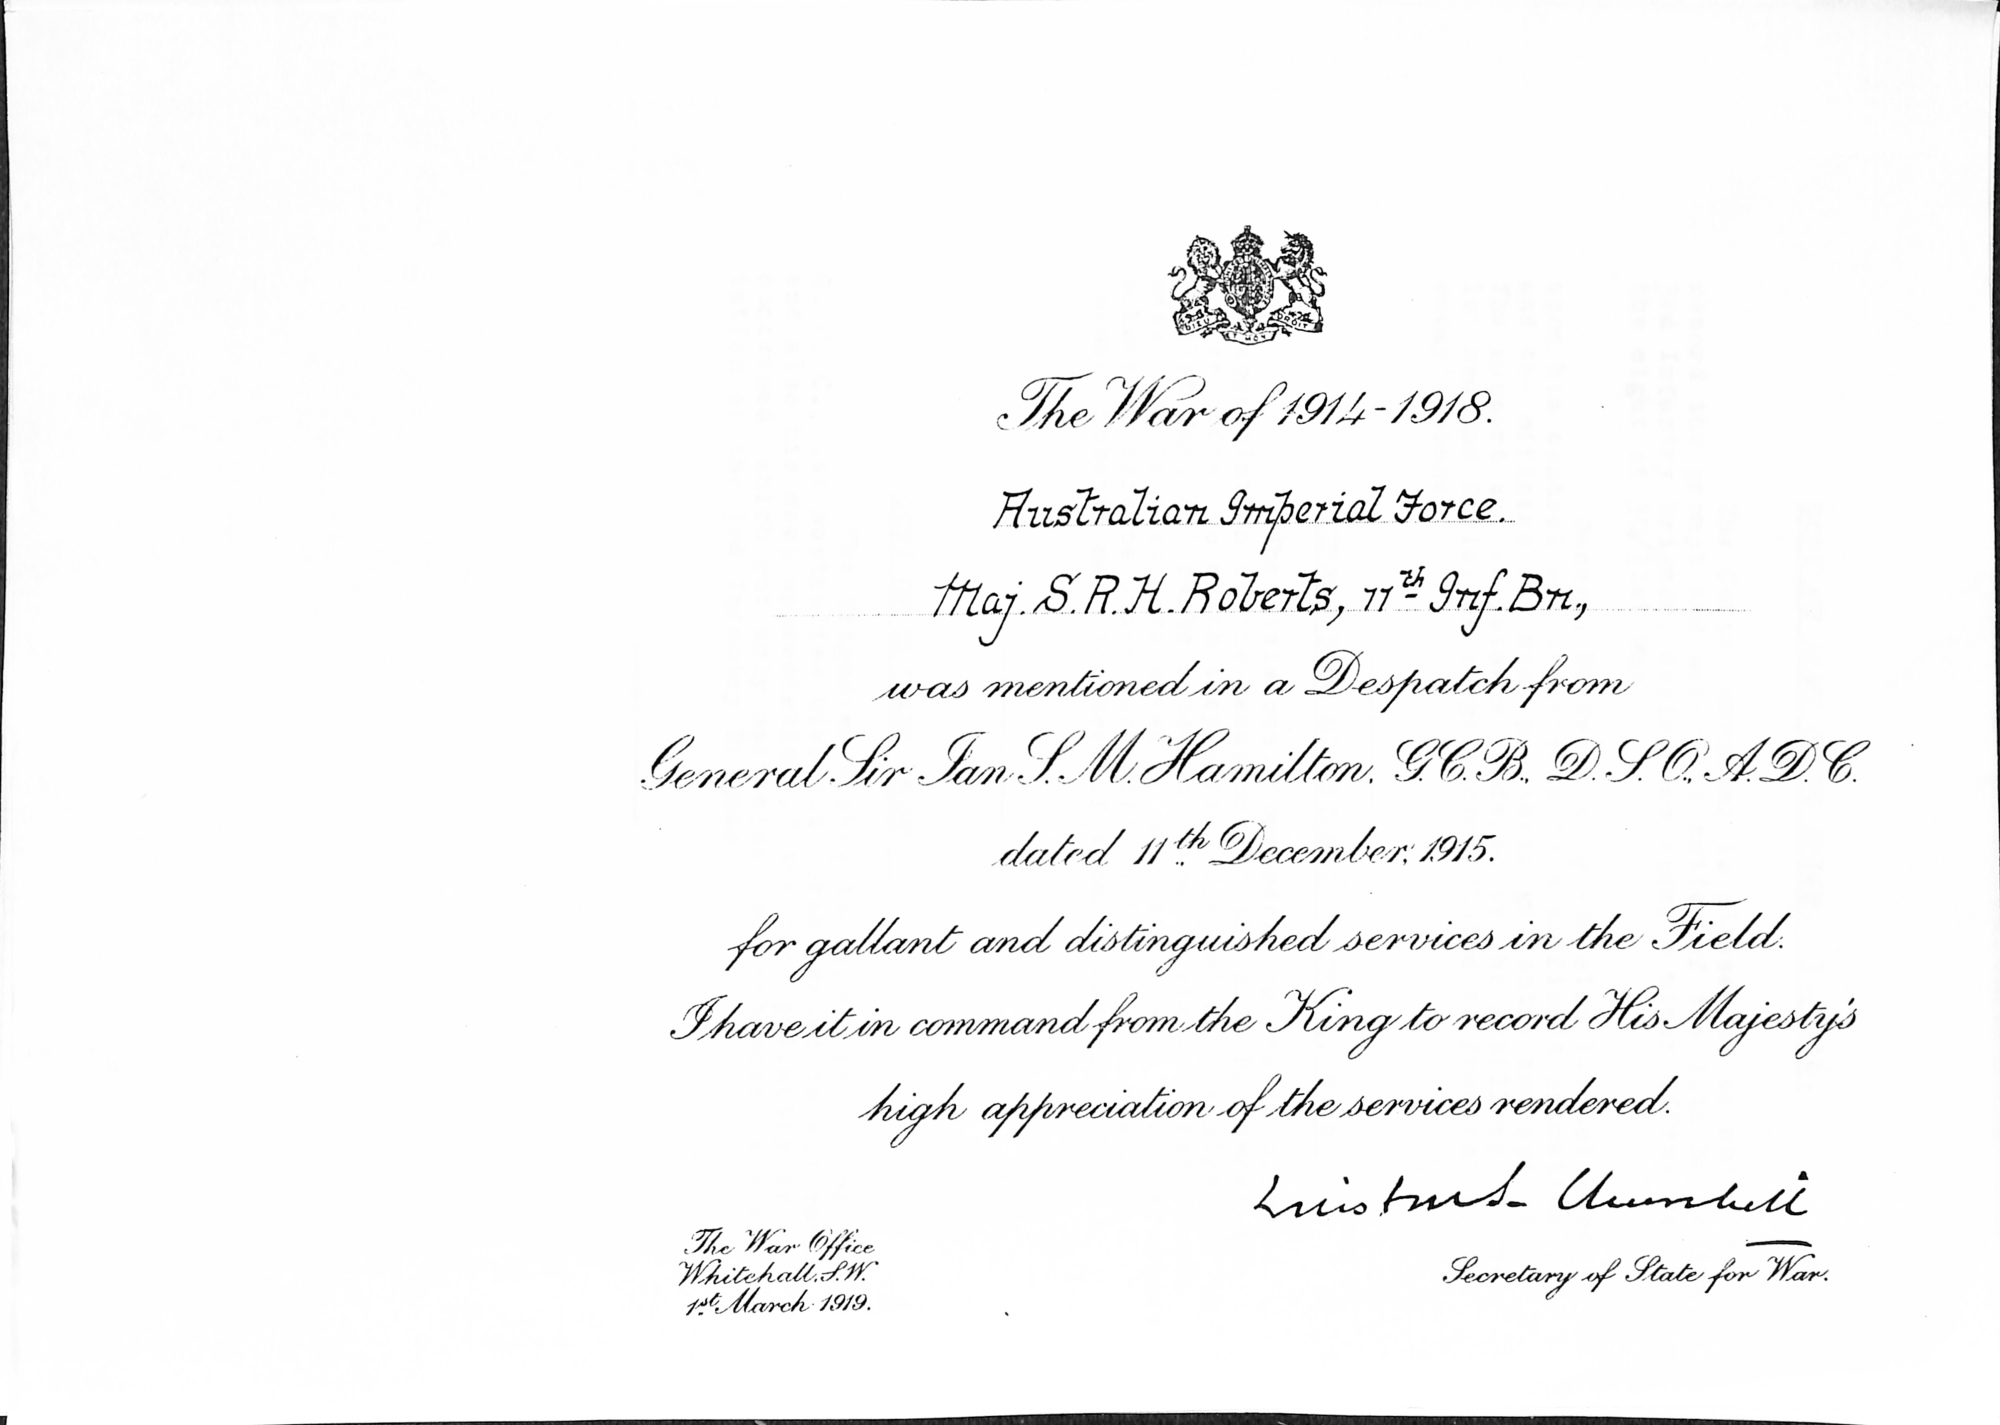 DIEU ET MON DROIT
The War of 1914-1918.
Australian Imperial Force.
Maj. S. R. H. Roberts, 11th Inf. Bn.,
was mentioned in a Despatch from
General Sir Ian S. M. Hamilton, G.C.B., D.S.O., A.D.C.
dated 11th December, 1915.
for gallant and distinguished services in the Field.
I have it in command from the King to record His Majesty's
high appreciation of the services rendered.
Winston S. Churchill
Secretary of State for War.
The War Office
Whitehall, S.W.
1st March 1919.